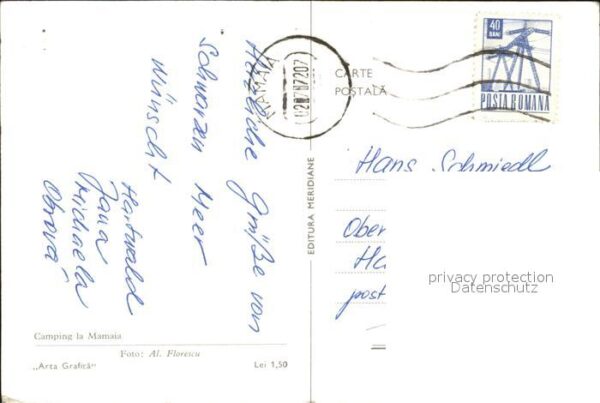 Herzliche Grüße von
Schwarzen Meer
wünscht
Hartwald
Jana
Michaela
Obrová
Camping la Mamaia
Foto: Al. Florescu
„Arta Grafică"
Lei 1,50
EDITURA MERIDIANE
MAMAIA
CARTE
POȘTALĂ
40
BANI
POSTA ROMANA
Hans Schmiedl
Ober
Ha
post
privacy protection
Datenschutz